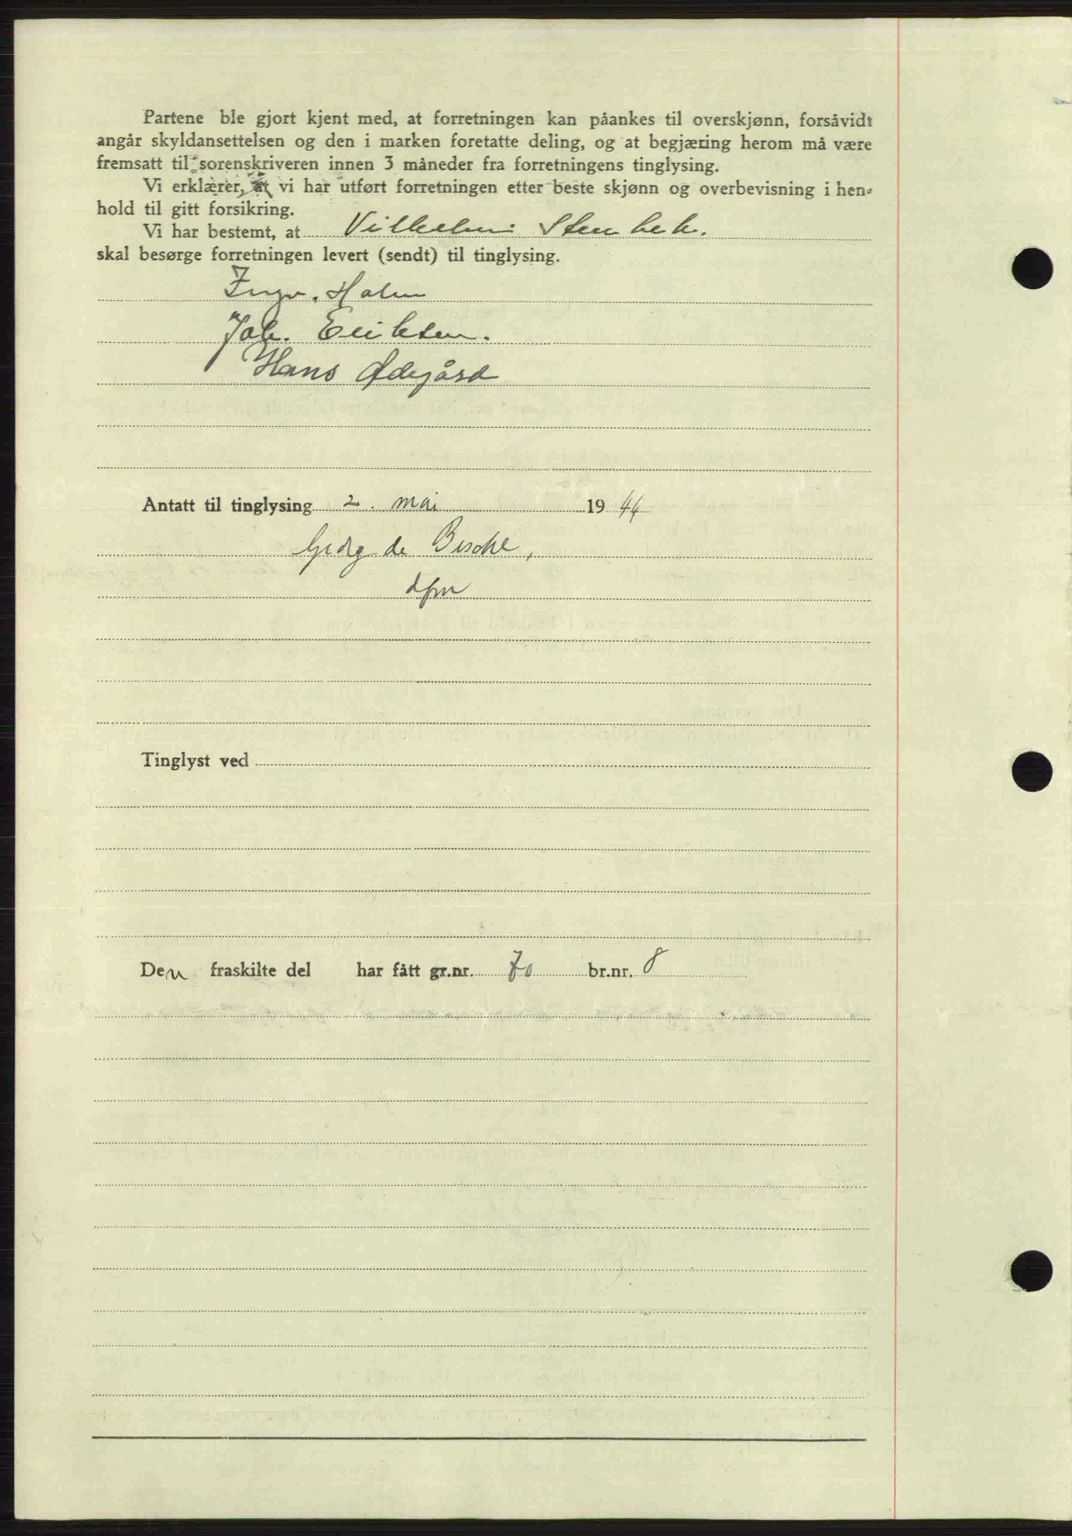 Partene ble gjort kjent med, at forretningen kan påankes til overskjønn, forsåvidt
angår skyldansettelsen og den i marken foretatte deling, og at begjæring herom må være
fremsatt til sorenskriveren innen 3 måneder fra forretningens tinglysing.
Vi erklærer, at vi har utført forretningen etter beste skjønn og overbevisning i hen-
hold til gitt forsikring.
Vi har bestemt, at Vilhelm Stenbek.
skal besørge forretningen levert (sendt) til tinglysing.
Ingv. Holm
Joh. Eriksen.
Hans Ødegård
Antatt til tinglysing 2. mai 1944
Georg de Besche,
dfm
Tinglyst ved
Den fraskilte del har fått gr.nr. 70 br.nr. 8